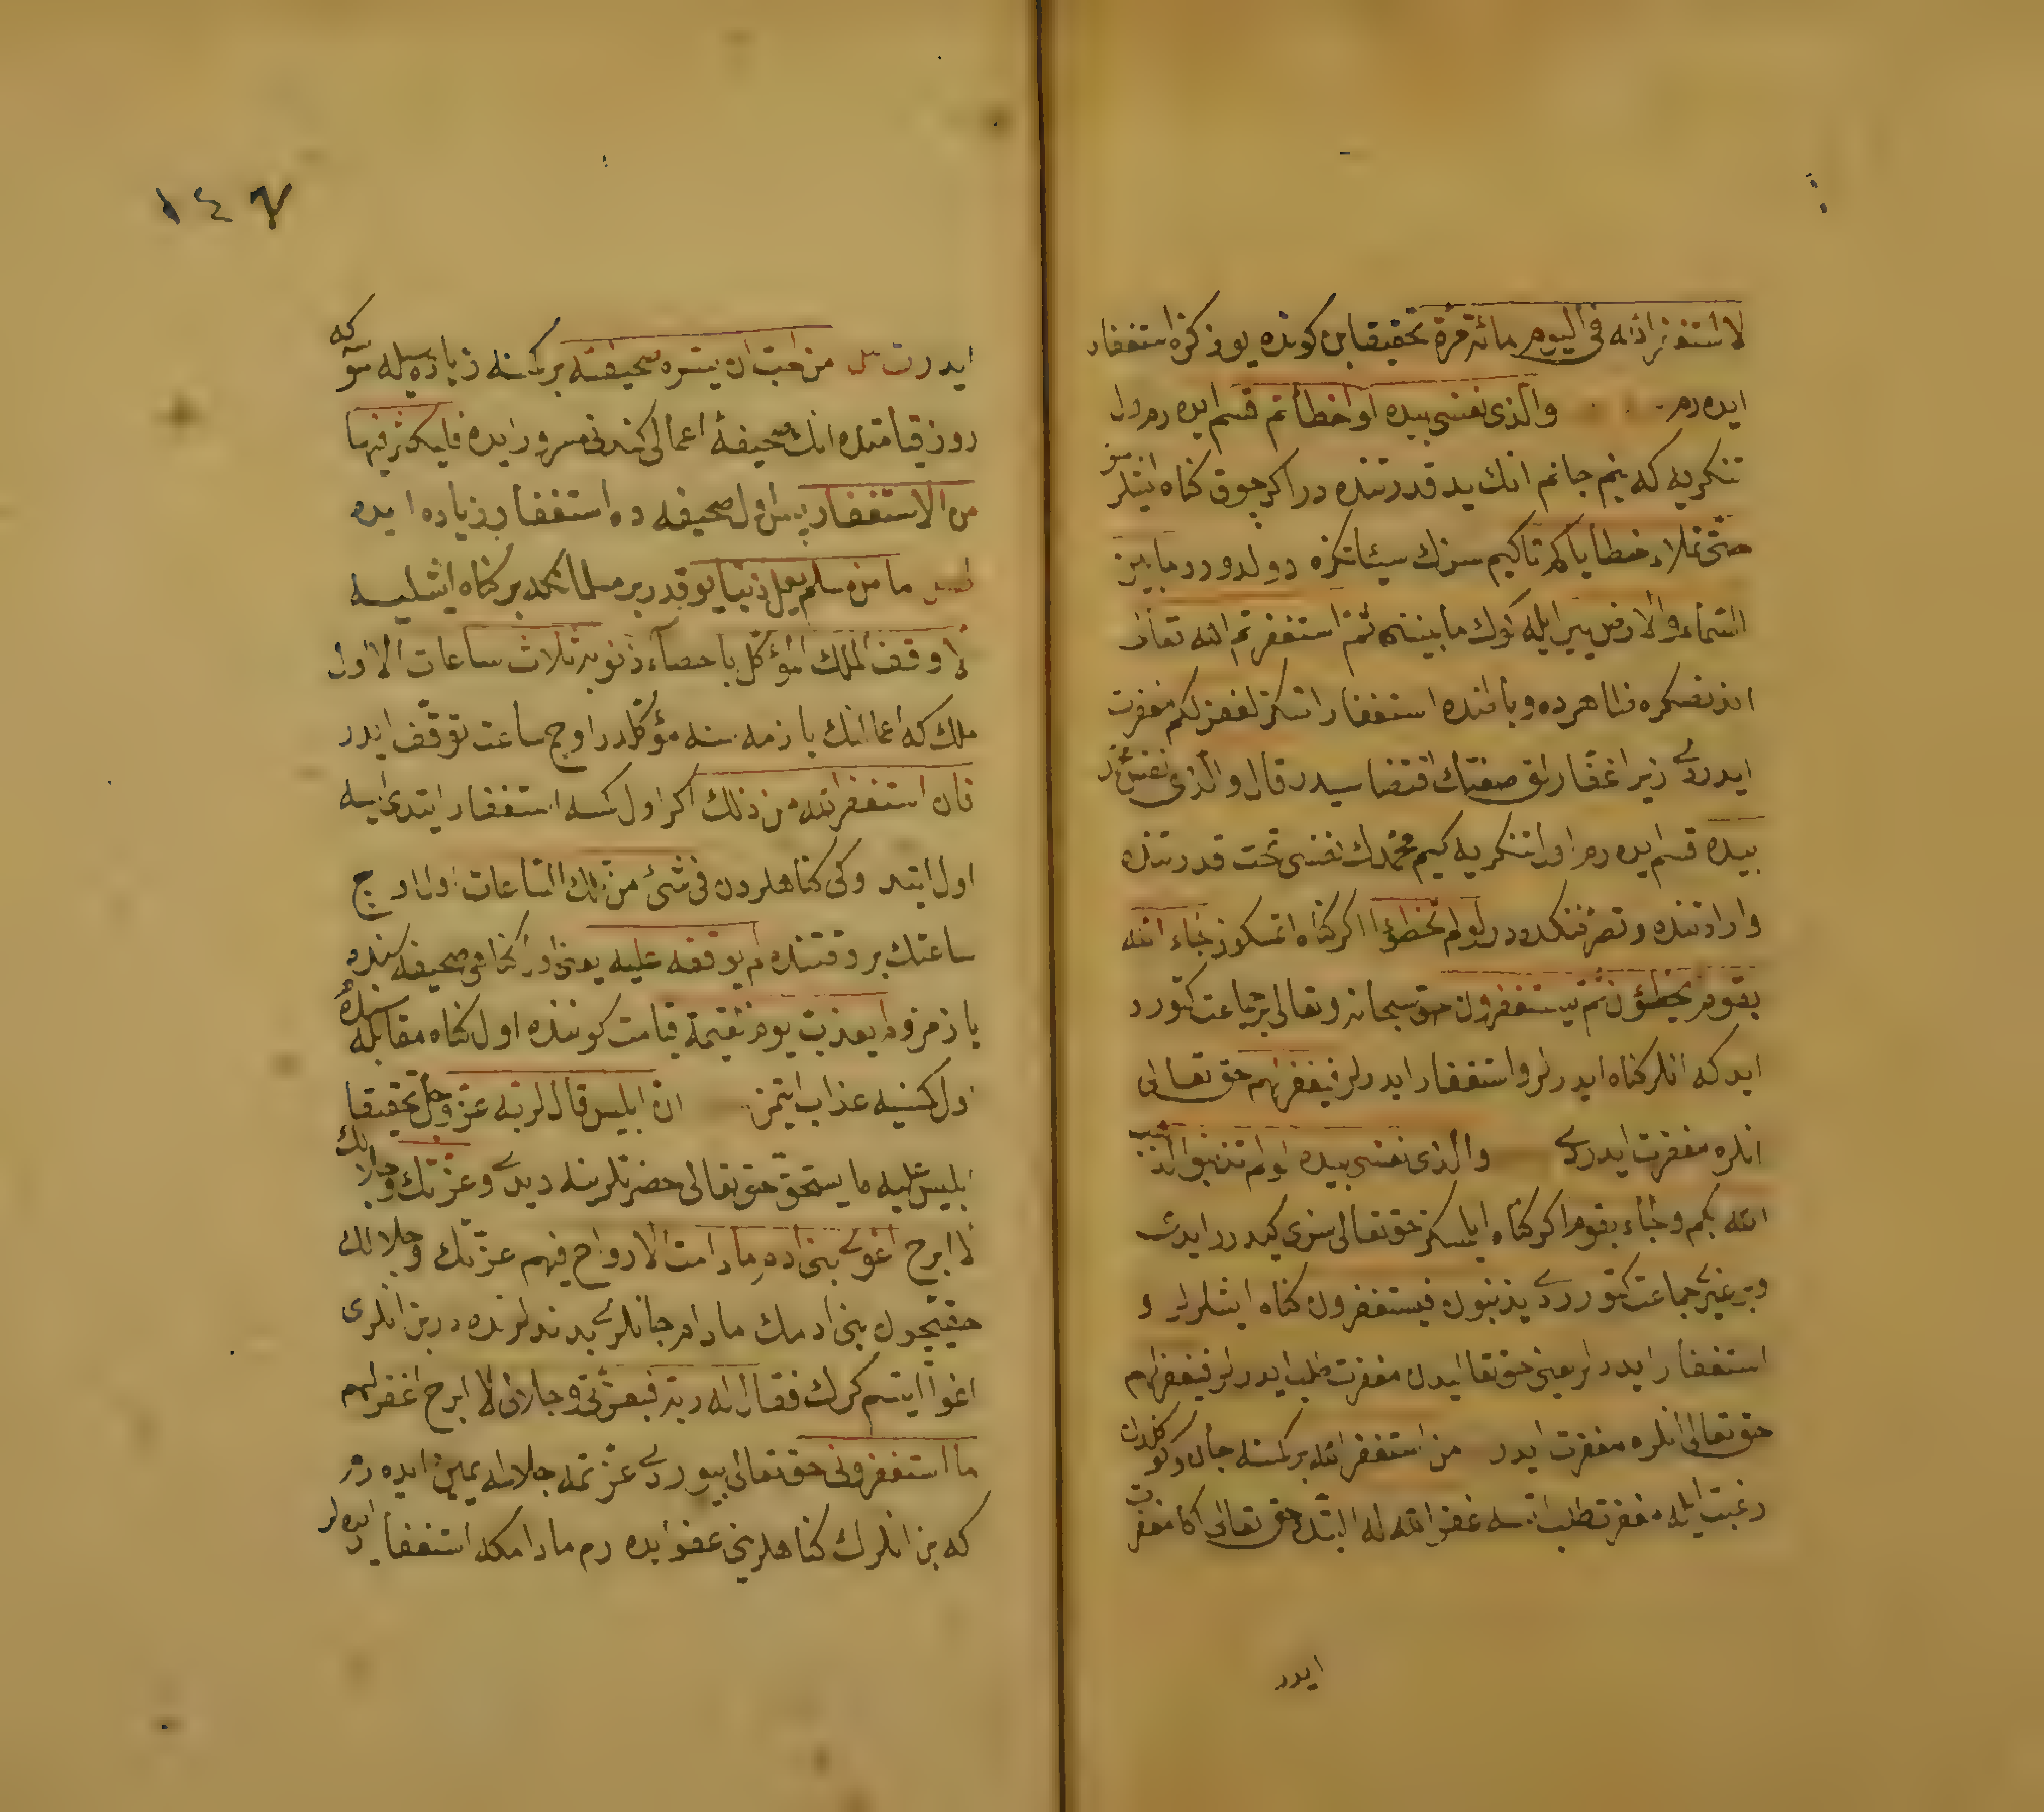 لاستغفر الله فى اليوم مائة مرة تحقيقا بن كونده يوز كره استغفار
ايده رم والذى نفسى بيده لو اخطأتم قسم ايده رم اول
تنكريه كه بنم جانم انك يد قدرتنده در اكر چوق كناه ايتسكز
حتى تملاء خطاياكم تا كيم سزك سيئاتكز دولدورر ما بين
السماء والارض يير ايله كوك ما بيننى ثم استغفرتم الله تعالى
اندنصكره ظاهرده وباطنده استغفار اتسكز لغفر لكم مغفرت
ايدردى زيرا غفارلق صفتك اقتضا سيدر قال والذى نفس محمد
بيده قسم ايده رم اول تنكريه كيم محمدك نفسى تحت قدرتنده
وارادتنده وتصرفنده در لو لم تخطؤا اكر كناه اتمسكوز لجاء الله
بقوم يخطؤن ثم يستغفرون حق سبحانه وتعالى بر جماعت كتورر
ايدى كه انلر كناه ايدرلر واستغفار ايدرلر فيغفر لهم حق تعالى
انلره مغفرت ايدردى والذى نفسى بيده لو لم تذنبوا لذهب
الله بكم ولجاء بقوم اكر كناه ايلمسكز حق تعالى سزى كيدرر ايدى
وبر غيرى جماعت كتورردى يذنبون فيستغفرون كناه ايشلرلر و
استغفار ايدرلر يعنى حق تعاليدن مغفرت طلب ايدرلر فيغفر لهم
حق تعالى انلره مغفرت ايدر من استغفر الله بر كمسنه جان وكوكلدن
رغبت ايله مغفرت طلب اتسه غفر الله له البته حق تعالى اكا مغفرت
ايدر
١٤٧
ايدر من احب ان يسره صحيفته بر كمسنه زياده سيله سوسه كه
روز قيامتده انك صحيفهٔ اعمالى كندنى مسرور ايده فليكثر فيها
من الاستغفار پس اول صحيفه ده استغفار زياده ايده
ما من مسلم يعمل ذنبا يوقدر بر مسلمانكه بر كناه ايشليه
الا وقف الملك المؤكل باحصاء ذنوبه ثلاث ساعات الا اول
ملك كه اعمالنك يازمه سنه مؤكلدر اوچ ساعت توقف ايدر
فان استغفر الله من ذلك اكر اول كمسه استغفار ايتدى ايسه
اول ايتدوكى كناهلردن فى شئ من تلك الساعات اول اوچ
ساعتك بر وقتنده لم يوقفه عليه يعنى اول كناهى صحيفه سنده
يازمز ولم يعذب يوم القيمة قيامت كوننده اول كناه مقابله سنده
اول كمسنيه عذاب ايتمز ان ابليس قال لربه عز وجل تحقيقا
ابليس عليه ما يستحق حق تعالى حضرتلرينه ديدى وعزتك وجلالك
لا ابرح اغوى بنى ادم ما دامت الارواح فيهم عزتك وجلالك
حقيچون بنى ادمك مادام جانلرى بدنلرنده در بن انلرى
اغوا ايتسم كرك فقال له ربه فبعزتى وجلالى لا ابرح اغفر لهم
ما استغفرونى حق تعالى بيوردى عزتمله جلالمله يمين ايده رم
كه بن انلرك كناهلرينى عفو ايده رم مادامكه استغفار ايده لر